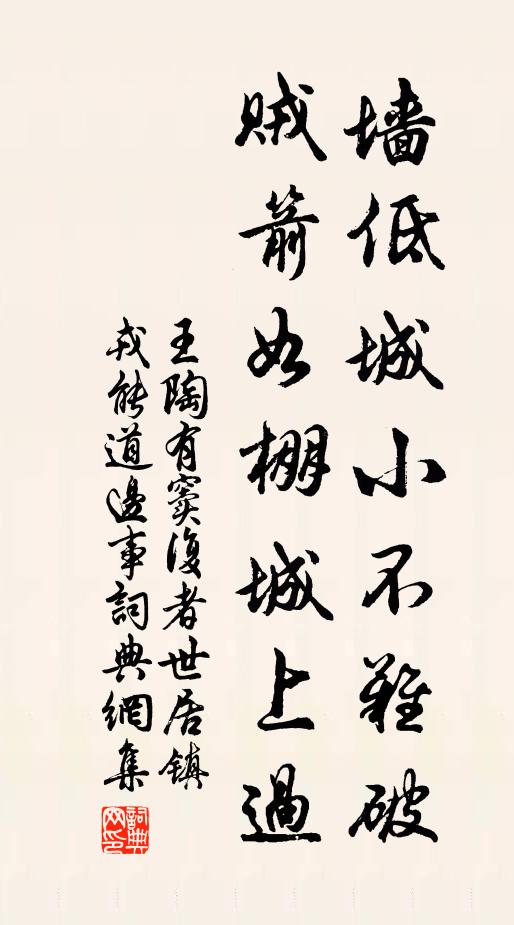 墙低城小不难破
贼箭如棚城上過
王陶有窦復者世居镇
戎能道邊事詞典網集
詞典
网印